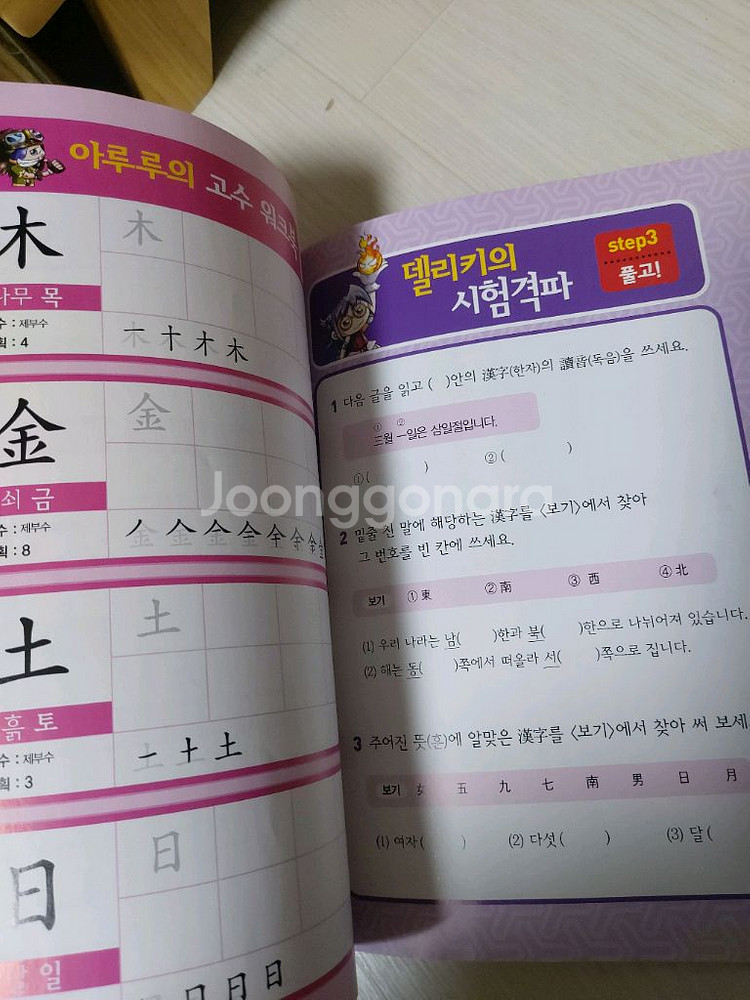 아루루의 고수 워크북
木
木
나무 목
수 : 제부수
획 : 4
一 十 才 木
金
金
쇠 금
수 : 제부수
획 : 8
土
土
흙 토
수 : 제부수
획 : 3
一 十 土
日
日
날 일
델리키의
시험격파
step3
풀고!
1 다음 글을 읽고 ( )안의 漢字(한자)의 讀音(독음)을 쓰세요.
① ②
三월 一일은 삼일절입니다.
①( ) ②( )
Joonggonara
2 밑줄 친 말에 해당하는 漢字를 <보기>에서 찾아
그 번호를 빈 칸에 쓰세요.
보기 ①東 ②南 ③西 ④北
(1) 우리 나라는 남( )한과 북( )한으로 나뉘어져 있습니다.
(2) 해는 동( )쪽에서 떠올라 서( )쪽으로 집니다.
3 주어진 뜻(훈)에 알맞은 漢字를 <보기>에서 찾아 써 보세
보기 女 五 九 七 南 男 日 月
(1) 여자( ) (2) 다섯( ) (3) 달(